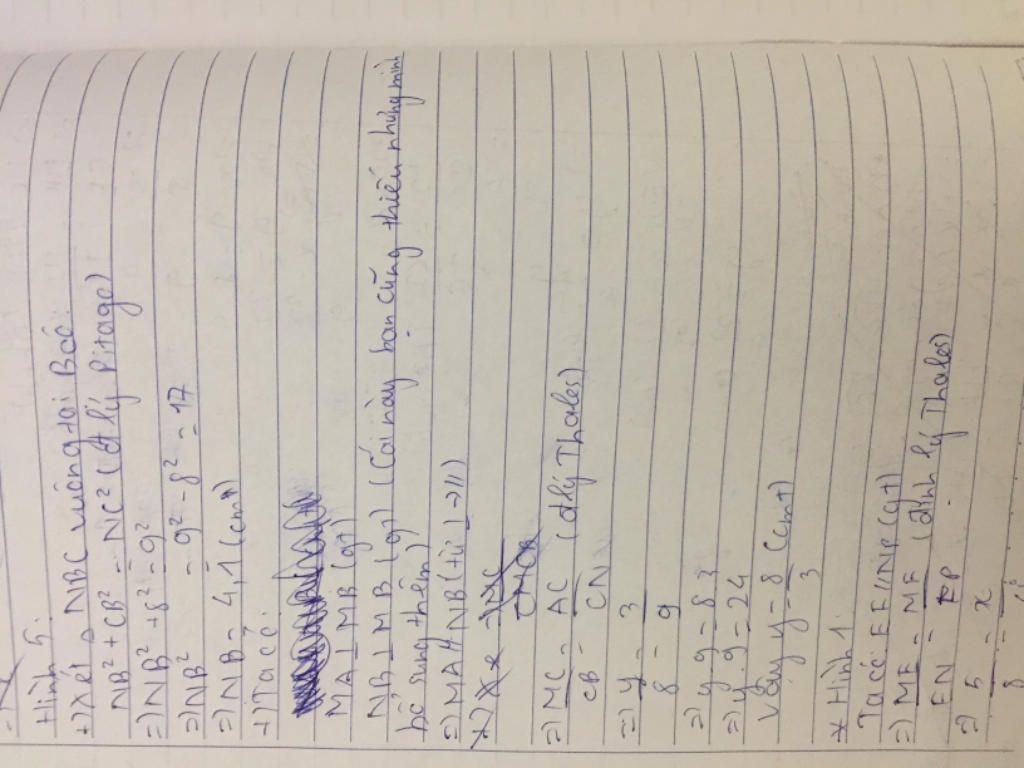 Hình 5:
+) Xét △ NBC vuông tại B có:
NB² + CB² = NC² (đ lý Pitago)
=> NB² + 8² = 9²
=> NB² = 9² - 8² = 17
=> NB = 4,1 (cm)
+) Ta có:
MA ⊥ MB (gt)
NB ⊥ MB (gt) (Cái này bạn cũng thiếu nhưng mình
bổ sung thêm)
=> MA // NB (từ ⊥ -> //)
=> MC/CB = AC/CN (đ lý Thales)
=> y/8 = 3/9
=> y.9 = 8.3
=> y.9 = 24
Vậy y = 8/3 (cm)
* Hình 1:
Ta có: EF // NP (gt)
=> ME/EN = MF/FP (định lý Thales)
=> 5/8 = x